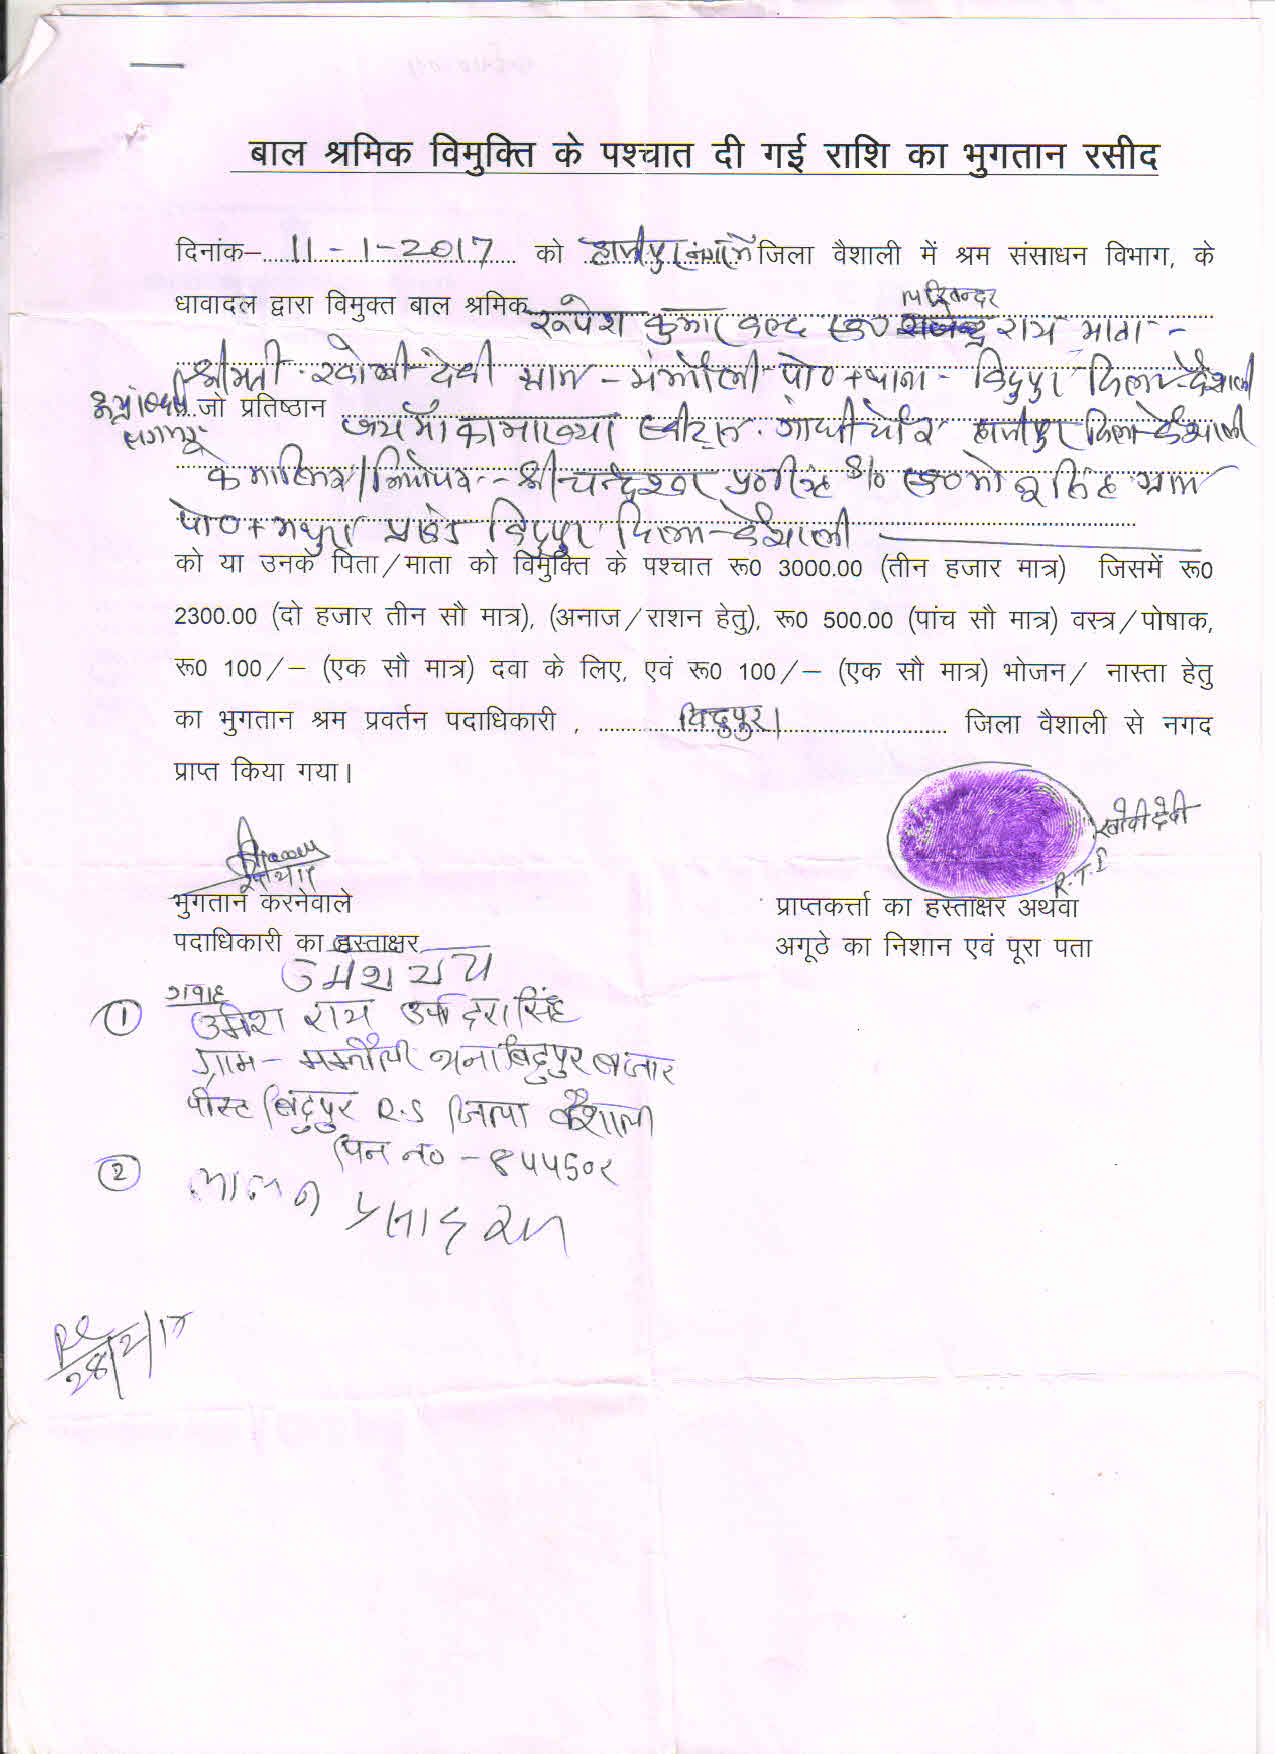 बाल श्रमिक विमुक्ति के पश्चात दी गई राशि का भुगतान रसीद
दिनांक– 11-1-2017 को हाजीपुर जिला वैशाली में श्रम संसाधन विभाग, के
धावादल द्वारा विमुक्त बाल श्रमिक रूपेश कुमार वल्द स्व0 राय माता -
श्रीमती देवी ग्राम - मझौली पो0+थाना - विदुपुर जिला-वैशाली
जो प्रतिष्ठान जय माँ कामाख्या स्वीट्स हाजीपुर जिला-वैशाली
के मालिक/नियोजक - श्री चन्द्रेश्वर S/o स्व0 सिंह ग्राम
पो0+मथुरा प्रखंड विदुपुर जिला-वैशाली
को या उनके पिता/माता को विमुक्ति के पश्चात रू0 3000.00 (तीन हजार मात्र) जिसमें रू0
2300.00 (दो हजार तीन सौ मात्र), (अनाज/राशन हेतु), रू0 500.00 (पांच सौ मात्र) वस्त्र/पोषाक,
रू0 100/– (एक सौ मात्र) दवा के लिए, एवं रू0 100/– (एक सौ मात्र) भोजन/ नास्ता हेतु
का भुगतान श्रम प्रवर्तन पदाधिकारी , विदुपुर। जिला वैशाली से नगद
प्राप्त किया गया।
देवी
R.T.I
भुगतान करनेवाले
पदाधिकारी का हस्ताक्षर
प्राप्तकर्त्ता का हस्ताक्षर अथवा
अगूठे का निशान एवं पूरा पता
उमेश राय
गवाह
① उमेश राय उर्फ सिंह
ग्राम - मझौली थाना बिदुपुर बाजार
पोस्ट बिदुपुर R.S जिला वैशाली
पिन न० - ८४४५०२
② प्रसाद
28/2/17